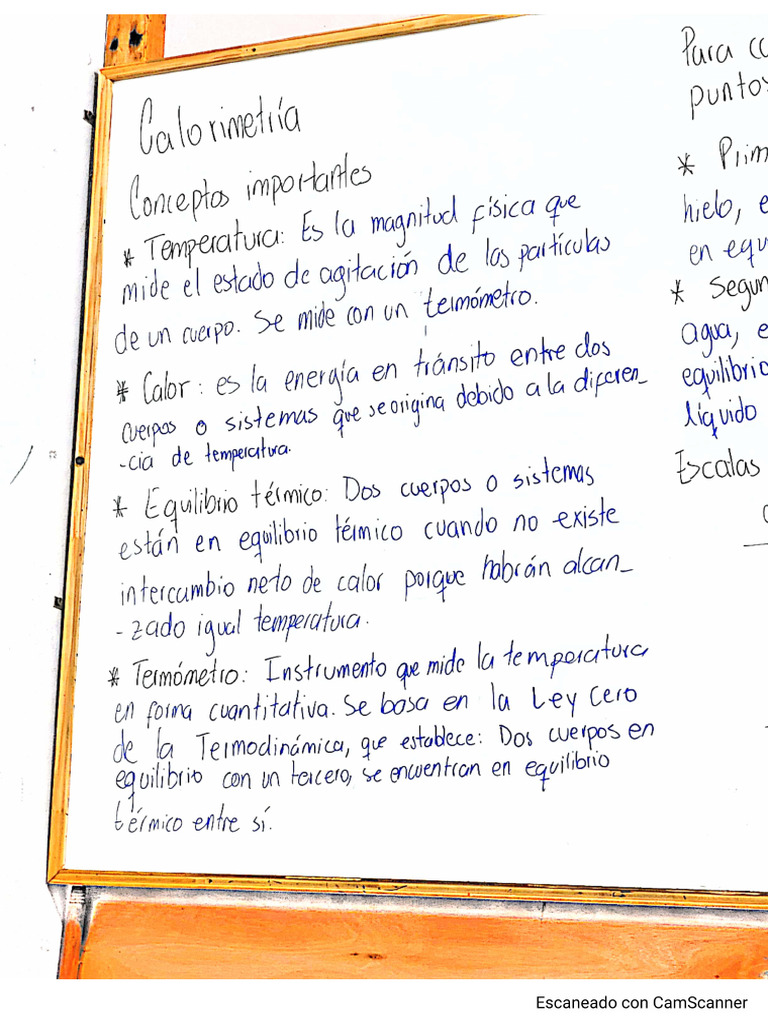 Calorimetría
Conceptos importantes
* Temperatura: Es la magnitud física que
mide el estado de agitación de las partículas
de un cuerpo. Se mide con un termómetro.
* Calor: es la energía en tránsito entre dos
cuerpos o sistemas que se origina debido a la diferen_
-cia de temperatura.
* Equilibrio térmico: Dos cuerpos o sistemas
están en equilibrio térmico cuando no existe
intercambio neto de calor porque habrán alcan_
-zado igual temperatura.
* Termómetro: Instrumento que mide la temperatura
en forma cuantitativa. Se basa en la Ley Cero
de la Termodinámica, que establece: Dos cuerpos en
equilibrio con un tercero, se encuentran en equilibrio
térmico entre sí.
Para
puntos
* Prim
hielo, e
en equ
* Segun
agua, e
equilibrio
líquido
Escalas
Escaneado con CamScanner